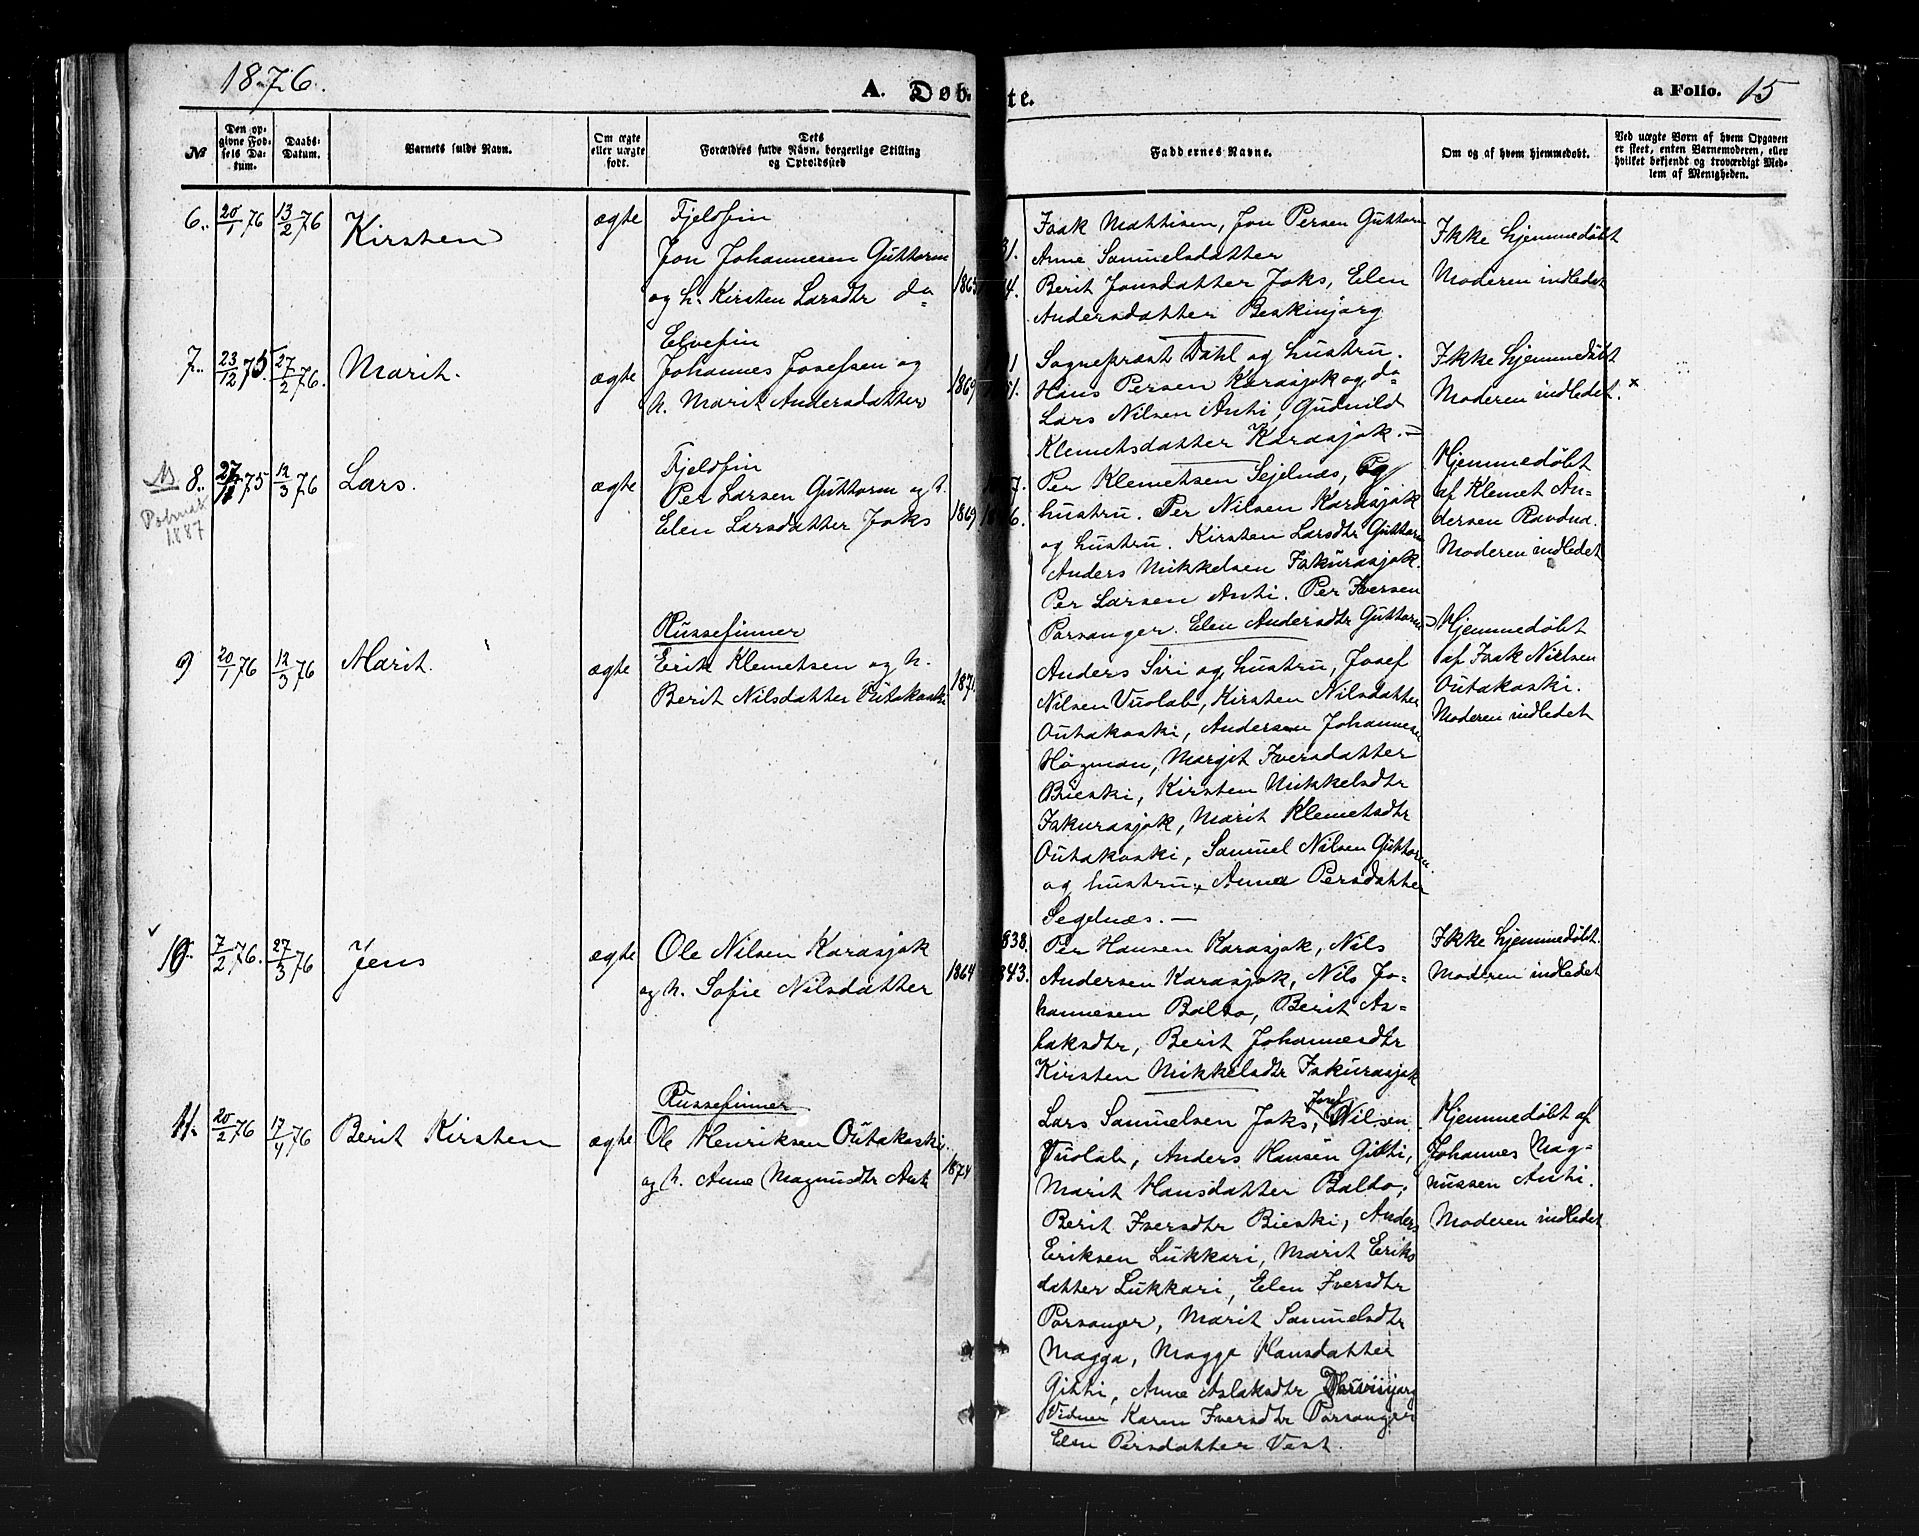 1876.
A. Døbte.
a Folio. 15
№
Den opgivne Fødsels Datum.
Daabs-Datum.
Barnets fulde Navn.
Om ægte eller uægte født.
Dets Forældres fulde Navn, borgerlige Stilling og Opholdssted
Faddernes Navne.
Om og af hvem hjemmedøbt.
Ved uægte Børn af hvem Opgaven er skeet, enten Barnemoderen, eller hvilket bekjendt og troværdigt Medlem af Menigheden.
6. 20/1 76 13/2 76 Kirsten ægte
Fjeldfin
Jon Johannesen Guttorm
og h. Kirsten Larsdtr do
1863
31.
Isak Mattisen, Jon Persen Guttorm
Anne Samuelsdatter
Berit Jonsdatter Joks, Elen
Andersdatter Beskinjarg
Ikke hjemmedøbt
Moderen indledet
7. 23/12 75. 27/2 76. Marit. ægte
Elvefin
Johannes Josefsen og
h. Marit Andersdatter
1869
Sognepræst Dahl og hustru.
Hans Persen Karasjok og do
Lars Nilsen Anti, Gudnild
Klemetsdatter Karasjok. —
Ikke hjemmedøbt
Moderen indledet. ×
8. 75 12/3 76 Lars. ægte
1887
Fjeldfin
Per Larsen Guttorm og h.
Elen Larsdatter Joks
1869
Per Klemetsen Sejelnæs, og
hustru. Per Nilsen Karasjok
og hustru. Kirsten Larsdtr Guttorm
Anders Mikkelsen Iskurasjok.
Per Larsen Anti. Per Iversen
Porsanger. Elen Andersdtr Guttorm
Hjemmedøbt
af Klemet An-
dersen Ravdna.
Moderen indledet
9 20/1 76 12/3 76 Marit. ægte
Russefinner
Erik Klemetsen og h.
Berit Nilsdatter Outakoski
187
Anders Siri og hustru, Josef
Nilsen Vuolab, Kirsten Nilsdatter
Outakoski, Andersen Johannesen
Högman, Margit Iversdatter
Bieski, Kirsten Mikkelsdtr
Iskurasjok, Marit Klemetsdtr
Outakoski, Samuel Nilsen Guttorm
og hustru, Anne Persdatter
Segelnæs. —
Hjemmedøbt
af Isak Nielsen
Outakoski.
Moderen indledet
10. 7/2 76. 27/3 76 Jens ægte
Ole Nilsen Karasjok
og h. Sofie Nilsdatter
1864
838.
843.
Per Hansen Karasjok, Nils
Andersen Karasjok, Nils Jo-
hannesen Balto, Berit As-
laksdtr, Berit Johannesdtr
Kirsten Mikkelsdtr Iskurasjok
Ikke hjemmedøbt.
Moderen indledet
11. 20/2 76 17/4 76 Berit Kirsten ægte
Russefinner
Ole Henriksen Outakoski
og h. Anne Magnusdtr Anti
1874
Lars Samuelsen Joks, Josef Nilsen
Vuolab, Anders Hansen Gitti,
Marit Hansdatter Balto,
Berit Iversdtr Bieski, Anders
Eriksen Lukkari, Marit Eriks
datter Lukkari, Elen Iversdtr
Porsanger, Marit Samuelsdtr
Magga, Magga Hansdatter
Gitti, Anne Aslaksdtr
Vidner Karen Iversdtr Porsanger
Elen Persdatter Vest.
Hjemmedøbt af
Johannes Mag-
nussen Anti.
Moderen indledet